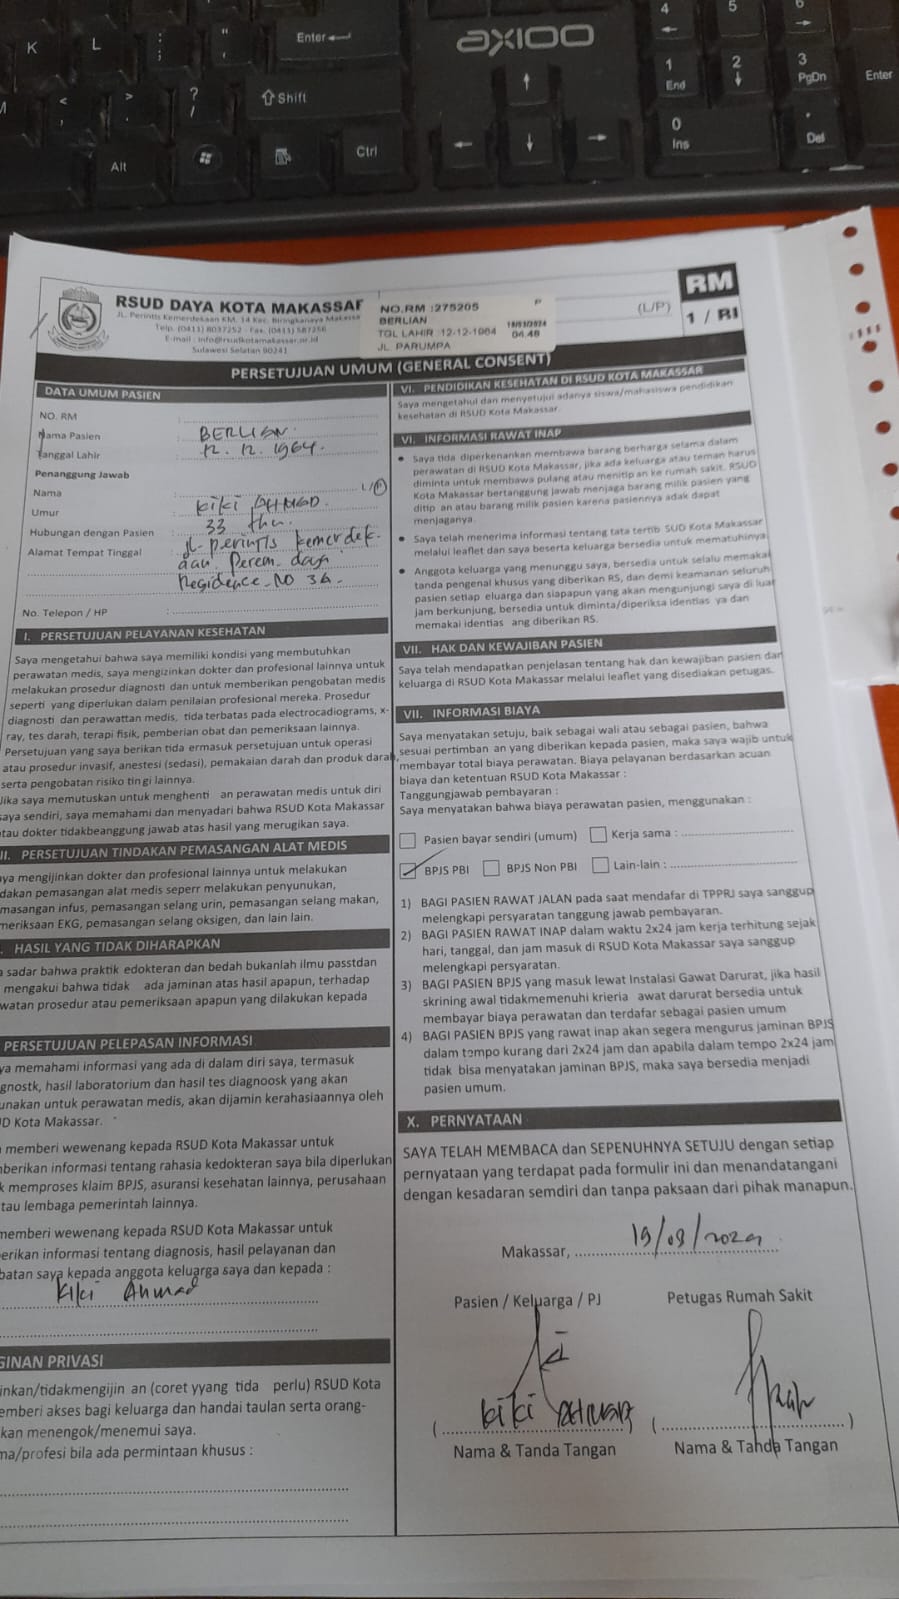 K
L
:
;
"
'
Enter
axioo
4
5
6
1
End
2
3
PgDn
Enter
<
,
>
.
?
/
Shift
0
Ins
.
Del
Alt
Ctrl
RSUD DAYA KOTA MAKASSAR
JL. Perintis Kemerdekaan KM. 14 Kec. Biringkanaya Makassa
Telp. (0411) 8037252 - Fax. (0411) 587256
E-mail : info@rsudkotamakassar.or.id
Sulawesi Selatan 90241
NO.RM :275205 P
BERLIAN
TGL LAHIR :12-12-1964
JL PARUMPA
(L/P)
RM
1 / RI
PERSETUJUAN UMUM (GENERAL CONSENT)
DATA UMUM PASIEN
NO. RM :
Nama Pasien : BERLIAN
Tanggal Lahir : 12. 12. 1964.
Penanggung Jawab
Nama : KIKI AHMAD. L/P
Umur : 33 thn.
Hubungan dengan Pasien :
Alamat Tempat Tinggal : Jl. perintis kemerdek.
aan Perum. daya
Residence. NO 3A.
No. Telepon / HP :
I. PERSETUJUAN PELAYANAN KESEHATAN
Saya mengetahui bahwa saya memiliki kondisi yang membutuhkan
perawatan medis, saya mengizinkan dokter dan profesional lainnya untuk
melakukan prosedur diagnosti dan untuk memberikan pengobatan medis
seperti yang diperlukan dalam penilaian profesional mereka. Prosedur
diagnosti dan perawattan medis, tida terbatas pada electrocadiograms, x-
ray, tes darah, terapi fisik, pemberian obat dan pemeriksaan lainnya.
Persetujuan yang saya berikan tida ermasuk persetujuan untuk operasi
atau prosedur invasif, anestesi (sedasi), pemakaian darah dan produk darah,
serta pengobatan risiko tingi lainnya.
Jika saya memutuskan untuk menghenti an perawatan medis untuk diri
saya sendiri, saya memahami dan menyadari bahwa RSUD Kota Makassar
atau dokter tidakbeanggung jawab atas hasil yang merugikan saya.
II. PERSETUJUAN TINDAKAN PEMASANGAN ALAT MEDIS
ya mengijinkan dokter dan profesional lainnya untuk melakukan
dakan pemasangan alat medis seperr melakukan penyunukan,
masangan infus, pemasangan selang urin, pemasangan selang makan,
meriksaan EKG, pemasangan selang oksigen, dan lain lain.
. HASIL YANG TIDAK DIHARAPKAN
a sadar bahwa praktik edokteran dan bedah bukanlah ilmu passtdan
mengakui bahwa tidak ada jaminan atas hasil apapun, terhadap
watan prosedur atau pemeriksaan apapun yang dilakukan kepada
PERSETUJUAN PELEPASAN INFORMASI
ya memahami informasi yang ada di dalam diri saya, termasuk
gnostk, hasil laboratorium dan hasil tes diagnoosk yang akan
unakan untuk perawatan medis, akan dijamin kerahasiaannya oleh
D Kota Makassar.
memberi wewenang kepada RSUD Kota Makassar untuk
berikan informasi tentang rahasia kedokteran saya bila diperlukan
k memproses klaim BPJS, asuransi kesehatan lainnya, perusahaan
tau lembaga pemerintah lainnya.
memberi wewenang kepada RSUD Kota Makassar untuk
erikan informasi tentang diagnosis, hasil pelayanan dan
batan saya kepada anggota keluarga saya dan kepada :
Kiki Ahmad
GINAN PRIVASI
inkan/tidakmengijin an (coret yyang tida perlu) RSUD Kota
emberi akses bagi keluarga dan handai taulan serta orang-
kan menengok/menemui saya.
ma/profesi bila ada permintaan khusus :
VI. PENDIDIKAN KESEHATAN DI RSUD KOTA MAKASSAR
Saya mengetahui dan menyetujui adanya siswa/mahasiswa pendidikan
kesehatan di RSUD Kota Makassar.
VI. INFORMASI RAWAT INAP
• Saya tida diperkenankan membawa barang berharga selama dalam
perawatan di RSUD Kota Makassar, jika ada keluarga atau teman harus
diminta untuk membawa pulang atau menitip an ke rumah sakit. RSUD
Kota Makassar bertanggung jawab menjaga barang milik pasien yang
ditip an atau barang milik pasien karena pasiennya adak dapat
menjaganya.
• Saya telah menerima informasi tentang tata tertib SUD Kota Makassar
melalui leaflet dan saya beserta keluarga bersedia untuk mematuhinya.
• Anggota keluarga yang menunggu saya, bersedia untuk selalu memakai
tanda pengenal khusus yang diberikan RS, dan demi keamanan seluruh
pasien setiap eluarga dan siapapun yang akan mengunjungi saya di luar
jam berkunjung, bersedia untuk diminta/diperiksa identias ya dan
memakai identias ang diberikan RS.
VII. HAK DAN KEWAJIBAN PASIEN
Saya telah mendapatkan penjelasan tentang hak dan kewajiban pasien dan
keluarga di RSUD Kota Makassar melalui leaflet yang disediakan petugas.
VII. INFORMASI BIAYA
Saya menyatakan setuju, baik sebagai wali atau sebagai pasien, bahwa
sesuai pertimban an yang diberikan kepada pasien, maka saya wajib untuk
membayar total biaya perawatan. Biaya pelayanan berdasarkan acuan
biaya dan ketentuan RSUD Kota Makassar :
Tanggungjawab pembayaran :
Saya menyatakan bahwa biaya perawatan pasien, menggunakan :
Pasien bayar sendiri (umum) Kerja sama :
BPJS PBI BPJS Non PBI Lain-lain :
1) BAGI PASIEN RAWAT JALAN pada saat mendafar di TPPRJ saya sanggup
melengkapi persyaratan tanggung jawab pembayaran.
2) BAGI PASIEN RAWAT INAP dalam waktu 2x24 jam kerja terhitung sejak
hari, tanggal, dan jam masuk di RSUD Kota Makassar saya sanggup
melengkapi persyaratan.
3) BAGI PASIEN BPJS yang masuk lewat Instalasi Gawat Darurat, jika hasil
skrining awal tidakmemenuhi krieria awat darurat bersedia untuk
membayar biaya perawatan dan terdafar sebagai pasien umum
4) BAGI PASIEN BPJS yang rawat inap akan segera mengurus jaminan BPJS
dalam tempo kurang dari 2x24 jam dan apabila dalam tempo 2x24 jam
tidak bisa menyatakan jaminan BPJS, maka saya bersedia menjadi
pasien umum.
X. PERNYATAAN
SAYA TELAH MEMBACA dan SEPENUHNYA SETUJU dengan setiap
pernyataan yang terdapat pada formulir ini dan menandatangani
dengan kesadaran semdiri dan tanpa paksaan dari pihak manapun.
Makassar, 19/03/2024
Pasien / Keluarga / PJ Petugas Rumah Sakit
( KIKI AHMAD ) ( )
Nama & Tanda Tangan Nama & Tanda Tangan